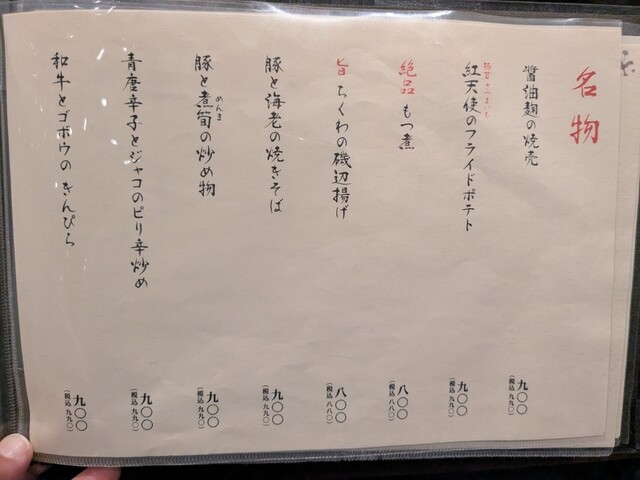 名物
醤油麹の焼売
九〇〇
(税込 九九〇)
紅天使のフライドポテト
九〇〇
(税込 九九〇)
絶品 もつ煮
八〇〇
(税込 八八〇)
旨 ちくわの磯辺揚げ
八〇〇
(税込 八八〇)
豚と海老の焼きそば
九〇〇
(税込 九九〇)
豚と煮筍の炒め物
めんま
九〇〇
(税込 九九〇)
青唐辛子とジャコのピリ辛炒め
九〇〇
(税込 九九〇)
和牛とゴボウのきんぴら
九〇〇
(税込 九九〇)